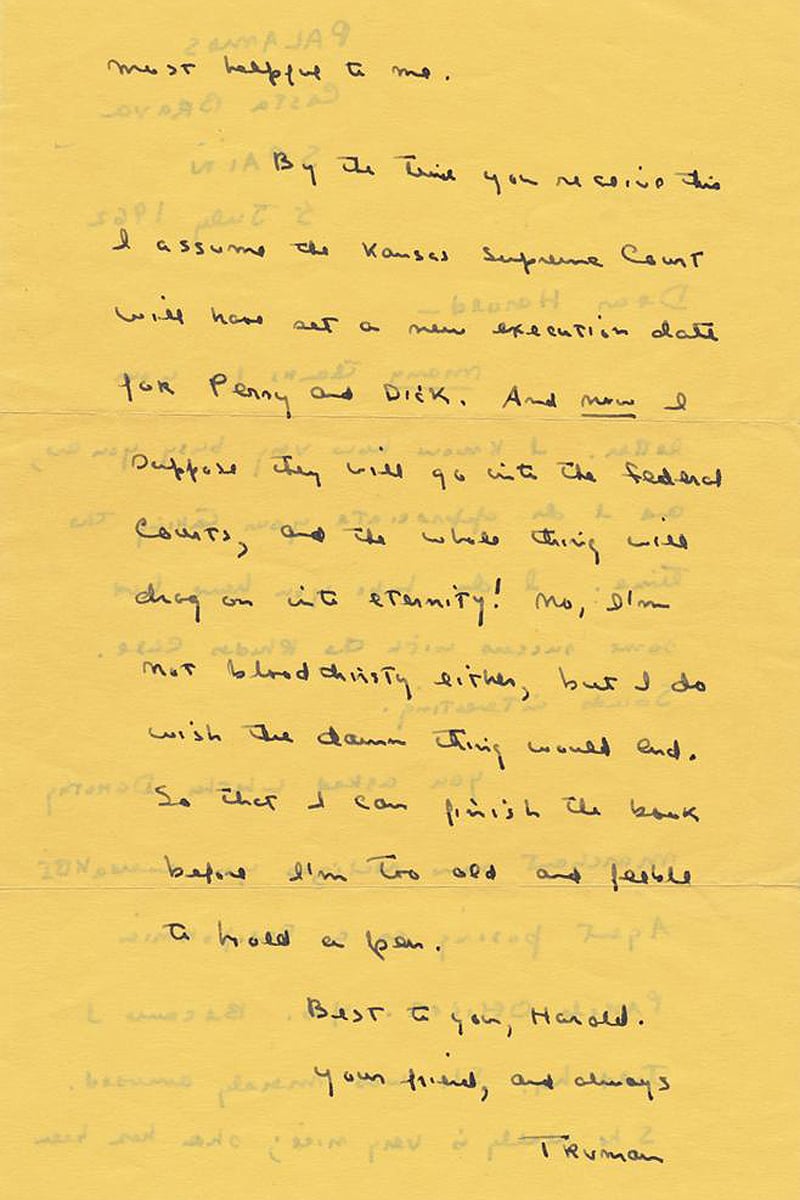 most helpful to me.
By the time you receive this
I assume the Kansas Supreme Court
will have set a new execution date
for Perry and Dick. And now I
suppose they will go into the Federal
Courts, and the whole thing will
drag on into eternity! No, I'm
not bloodthirsty either, but I do
wish the damn thing would end.
So that I can finish the book
before I'm too old and feeble
to hold a pen.
Best to you, Harold.
Your friend, and always
Truman